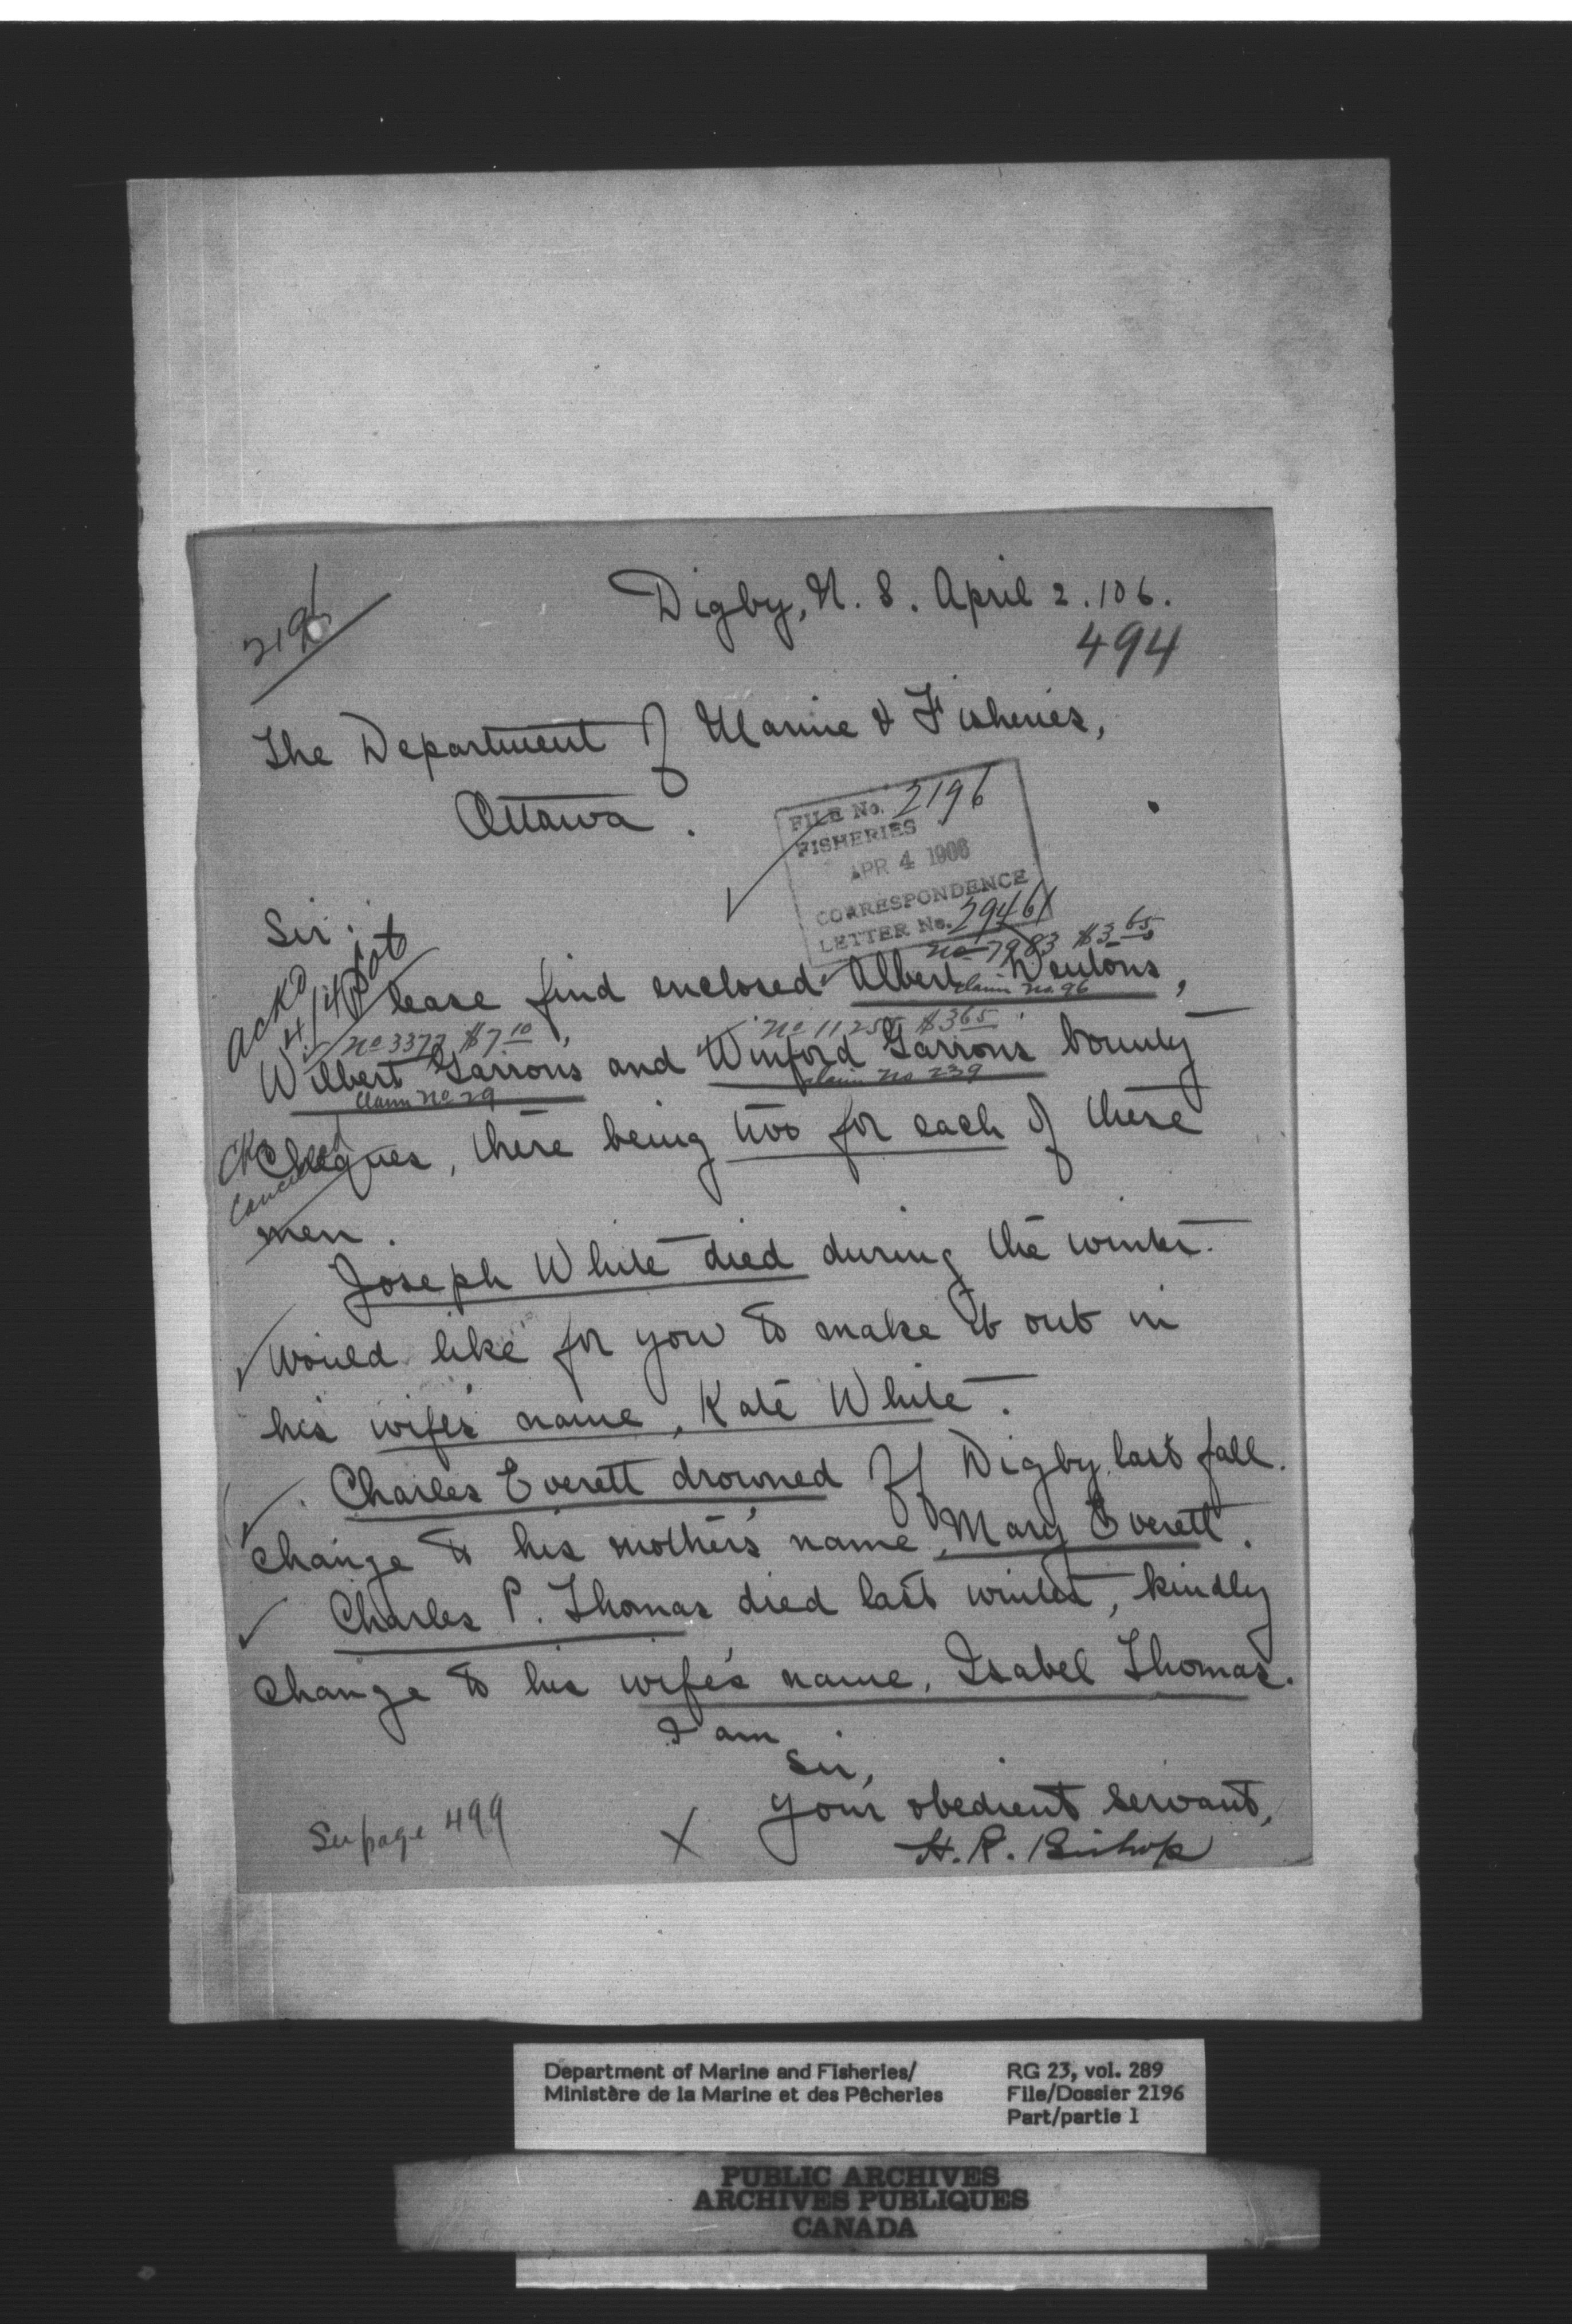 2196
Digby, N. S. April 2. 106.
494
The Department of Marine & Fisheries,
Ottawa.
FILE No. 2196
FISHERIES
APR 4 1906
CORRESPONDENCE
LETTER No. 29461
Sir:
Ack'd
4/4
no 7983 $3.65
Please find enclosed Albert
claim no. 96
no 3373 $7.10
no 11255 $3.65
Wilbert Garron's and Winford Garron's bounty
claim no 29
claim no 239
Cheques, there being two for each of these
Cks
Cancelled
men.
Joseph White died during the winter.
Would like for you to make it out in
his wife's name, Kate White.
Charles Everett drowned off Digby last fall.
Change to his mother's name, Mary Everett.
Charles P. Thomas died last winter, kindly
Change to his wife's name, Isabel Thomas.
I am
Sir,
Your obedient servant,
H. R. Bishop
See page 499
X
Department of Marine and Fisheries/
Ministère de la Marine et des Pêcheries
RG 23, vol. 289
File/Dossier 2196
Part/partie 1
PUBLIC ARCHIVES
ARCHIVES PUBLIQUES
CANADA